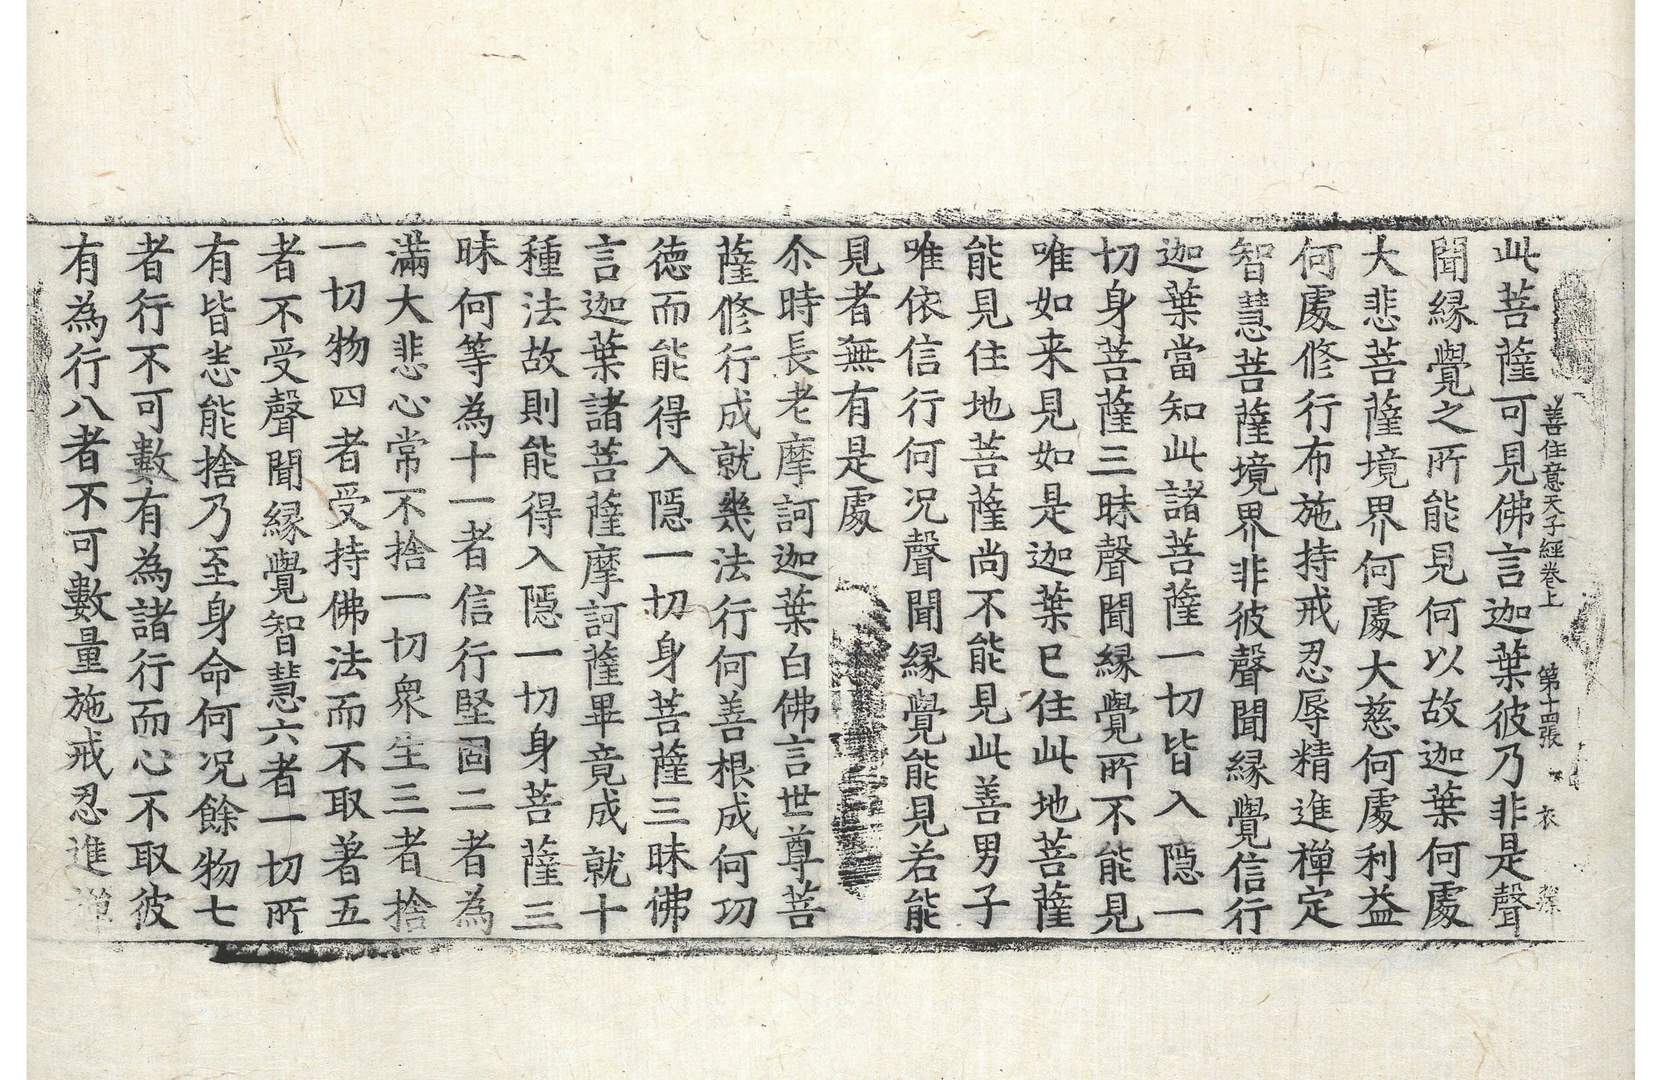 善住意天子經卷上 第十四張 衣
此菩薩可見佛言迦葉彼乃非是聲
聞縁覺之所能見何以故迦葉何處
大悲菩薩境界何處大慈何處利益
何處修行布施持戒忍辱精進禪定
智慧菩薩境界非彼聲聞縁覺信行
迦葉當知此諸菩薩一切皆入隱一
切身菩薩三昧聲聞縁覺所不能見
唯如来見如是迦葉已住此地菩薩
能見住地菩薩尚不能見此善男子
唯依信行何况聲聞縁覺能見若能
見者無有是處
尒時長老摩訶迦葉白佛言世尊菩
薩修行成就幾法行何善根成何功
德而能得入隱一切身菩薩三昧佛
言迦葉諸菩薩摩訶薩畢竟成就十
種法故則能得入隱一切身菩薩三
昧何等為十一者信行堅固二者為
滿大悲心常不捨一切衆生三者捨
一切物四者受持佛法而不取著五
者不受聲聞縁覺智慧六者一切所
有皆悉能捨乃至身命何况餘物七
者行不可數有為諸行而心不取彼
有為行八者不可數量施戒忍進禪